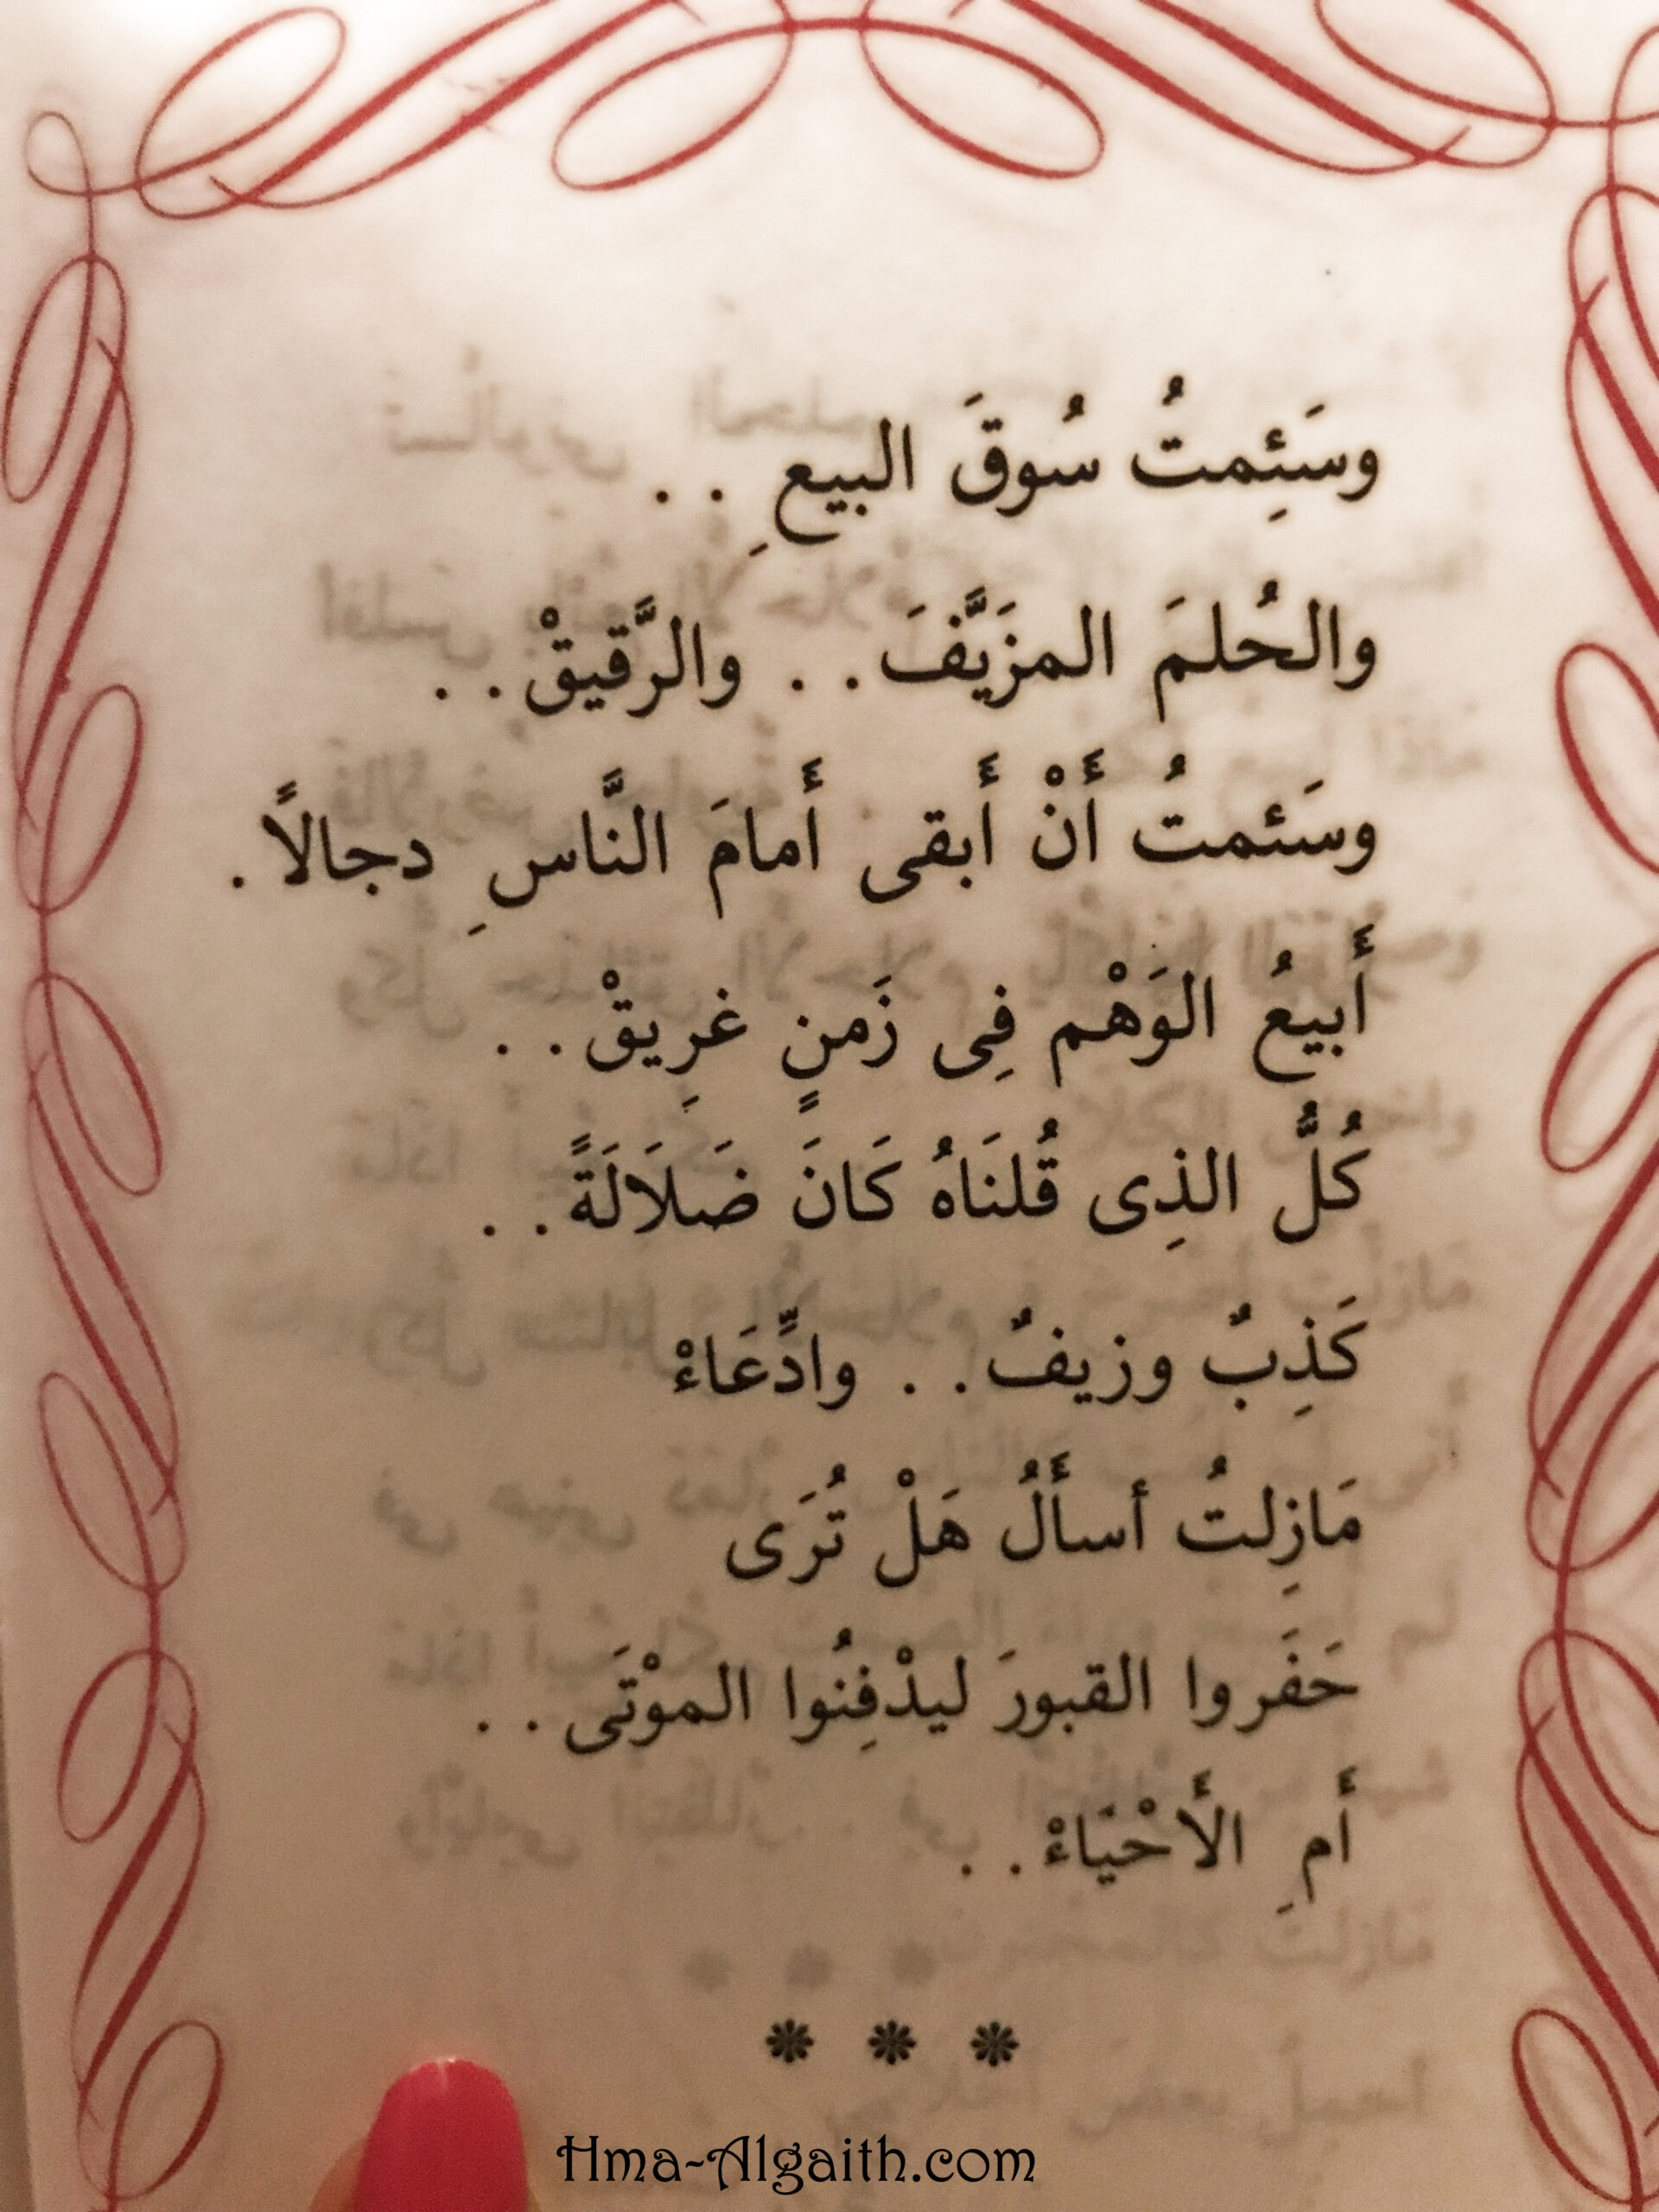 وسَئِمتُ سُوقَ البيعِ . .
والحُلمَ المزَيَّفَ . . والرَّقيقْ . .
وسَئمتُ أَنْ أَبقى أَمامَ النَّاسِ دجالاً .
أَبيعُ الوَهْم فِى زَمنٍ غرِيقْ . .
كُلُّ الذِى قُلنَاهُ كَانَ ضَلاَلَةً . .
كَذِبٌ وزيفٌ . . وادِّعَاءْ
مَازِلتُ أسأَلُ هَلْ تُرَى
حَفَروا القبورَ ليدْفِنُوا الموْتَى . .
أَمِ الأَحْيَاءْ . .
* * *
Hma-Algaith.com